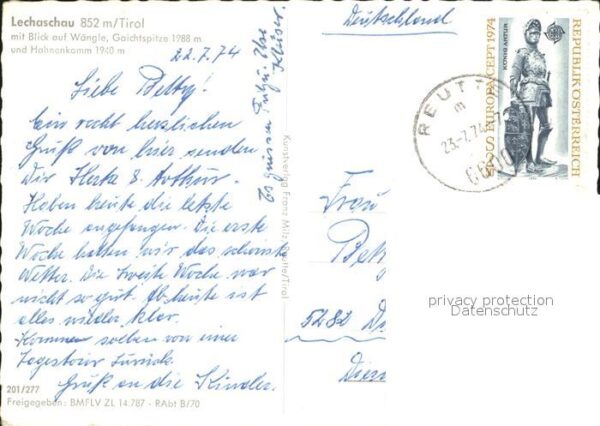 Lechaschau 852 m/Tirol
mit Blick auf Wängle, Gaichtspitze 1988 m
und Hahnenkamm 1940 m
22.7.74
Liebe Betty!
Ein recht herzlichen
Gruß von hier senden
Dir Herta & Arthur.
Haben heute die letzte
Woche angefangen. Die erste
Woche hatten wir das schönste
Wetter. Die zweite Woche war
nicht so gut. Ab heute ist
alles wieder klar.
Kommen soeben von einer
Tagestour zurück.
Gruß an die Kinder.
201/277
Freigegeben: BMFLV ZL 14.787 - RAbt B/70
Es grüssen
Kunstverlag Franz Milz, Reutte/Tirol
Deutschland
Frau
5282
REUTTE
23.-7.74
6600
S 6 EUROPA CEPT 1974
KÖNIG ARTUR
REPUBLIK ÖSTERREICH
privacy protection
Datenschutz